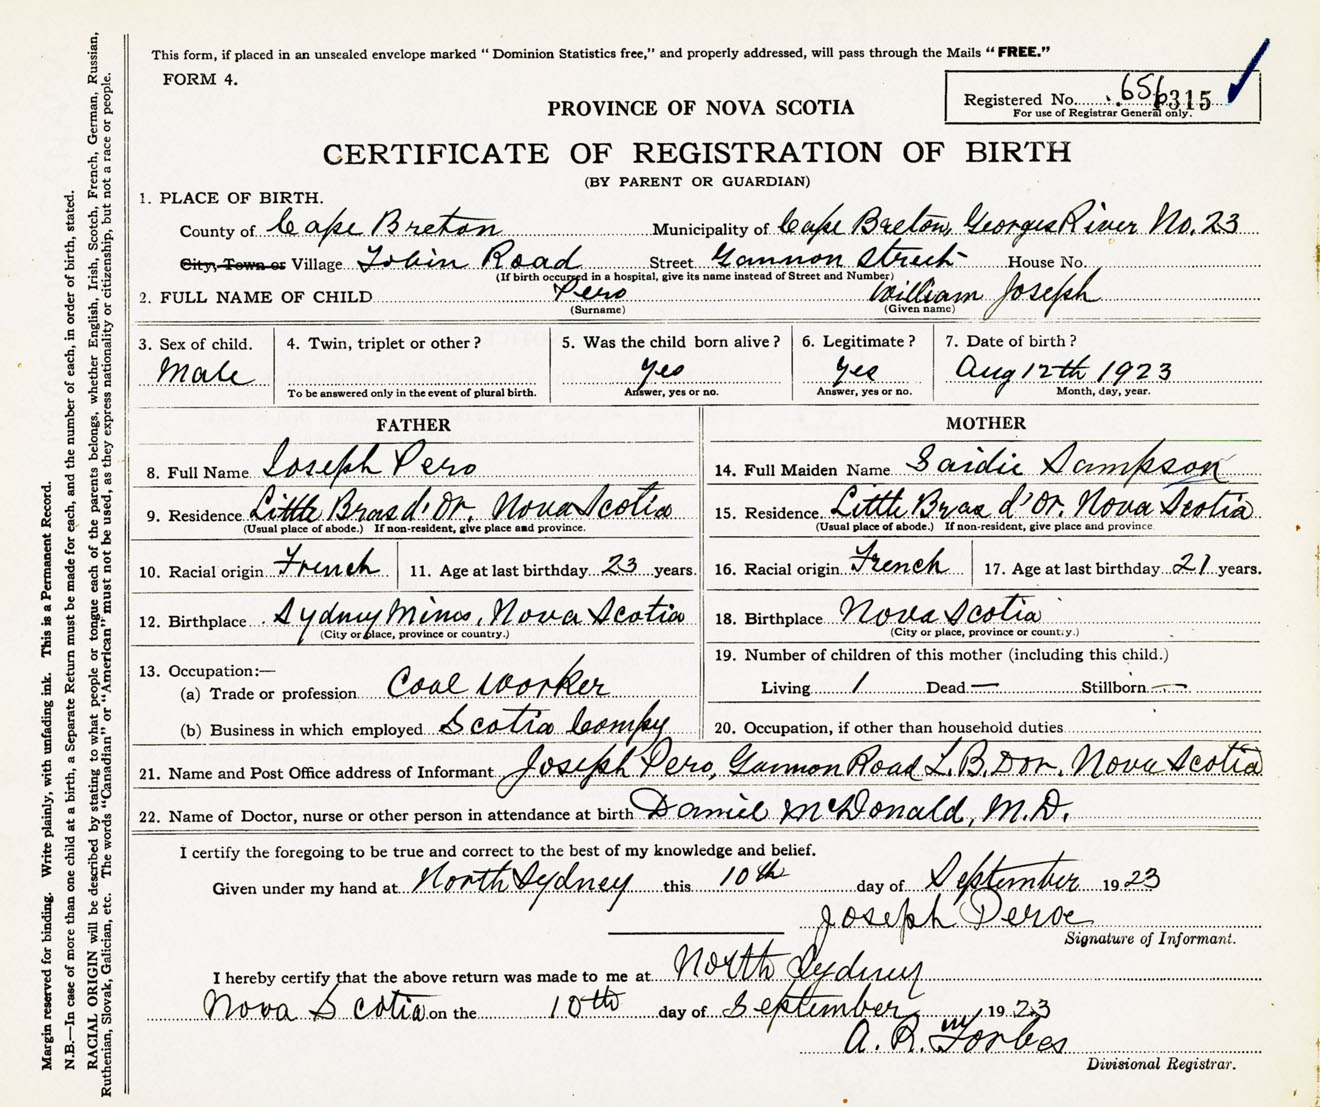 This form, if placed in an unsealed envelope marked “Dominion Statistics free,” and properly addressed, will pass through the Mails “FREE.”
FORM 4.
Registered No. 656 315
For use of Registrar General only.
PROVINCE OF NOVA SCOTIA
CERTIFICATE OF REGISTRATION OF BIRTH
(BY PARENT OR GUARDIAN)
1. PLACE OF BIRTH.
County of Cape Breton Municipality of Cape Breton, Georges River No. 23
City, Town or Village Tobin Road Street Gannon Street House No.
(If birth occurred in a hospital, give its name instead of Street and Number)
2. FULL NAME OF CHILD Pero William Joseph
(Surname) (Given name)
3. Sex of child. 4. Twin, triplet or other? 5. Was the child born alive? 6. Legitimate? 7. Date of birth?
Male Yes Yes Aug 12th 1923
To be answered only in the event of plural birth. Answer, yes or no. Answer, yes or no. Month, day, year.
FATHER
8. Full Name Joseph Pero
9. Residence Little Bras d'Or, Nova Scotia
(Usual place of abode.) If non-resident, give place and province.
10. Racial origin French 11. Age at last birthday 23 years.
12. Birthplace Sydney Mines, Nova Scotia
(City or place, province or country.)
13. Occupation:—
(a) Trade or profession Coal worker
(b) Business in which employed Scotia Compy
MOTHER
14. Full Maiden Name Saidie Sampson
15. Residence Little Bras d'Or, Nova Scotia
(Usual place of abode.) If non-resident, give place and province
16. Racial origin French 17. Age at last birthday 21 years.
18. Birthplace Nova Scotia
(City or place, province or country.)
19. Number of children of this mother (including this child.)
Living 1 Dead — Stillborn —
20. Occupation, if other than household duties
21. Name and Post Office address of Informant Joseph Pero, Gannon Road L.B.Dor. Nova Scotia
22. Name of Doctor, nurse or other person in attendance at birth Daniel McDonald, M.D.
I certify the foregoing to be true and correct to the best of my knowledge and belief.
Given under my hand at North Sydney this 10th day of September 1923
Joseph Peroe
Signature of Informant.
I hereby certify that the above return was made to me at North Sydney
Nova Scotia on the 10th day of September 1923
A. R. Forbes
Divisional Registrar.
Margin reserved for binding. Write plainly, with unfading ink. This is a Permanent Record.
N.B.—In case of more than one child at a birth, a Separate Return must be made for each, and the number of each, in order of birth, stated.
RACIAL ORIGIN will be described by stating to what people or tongue each of the parents belongs, whether English, Irish, Scotch, French, German, Russian,
Ruthenian, Slovak, Galician, etc. The words “Canadian” or “American” must not be used, as they express nationality or citizenship, but not a race or people.